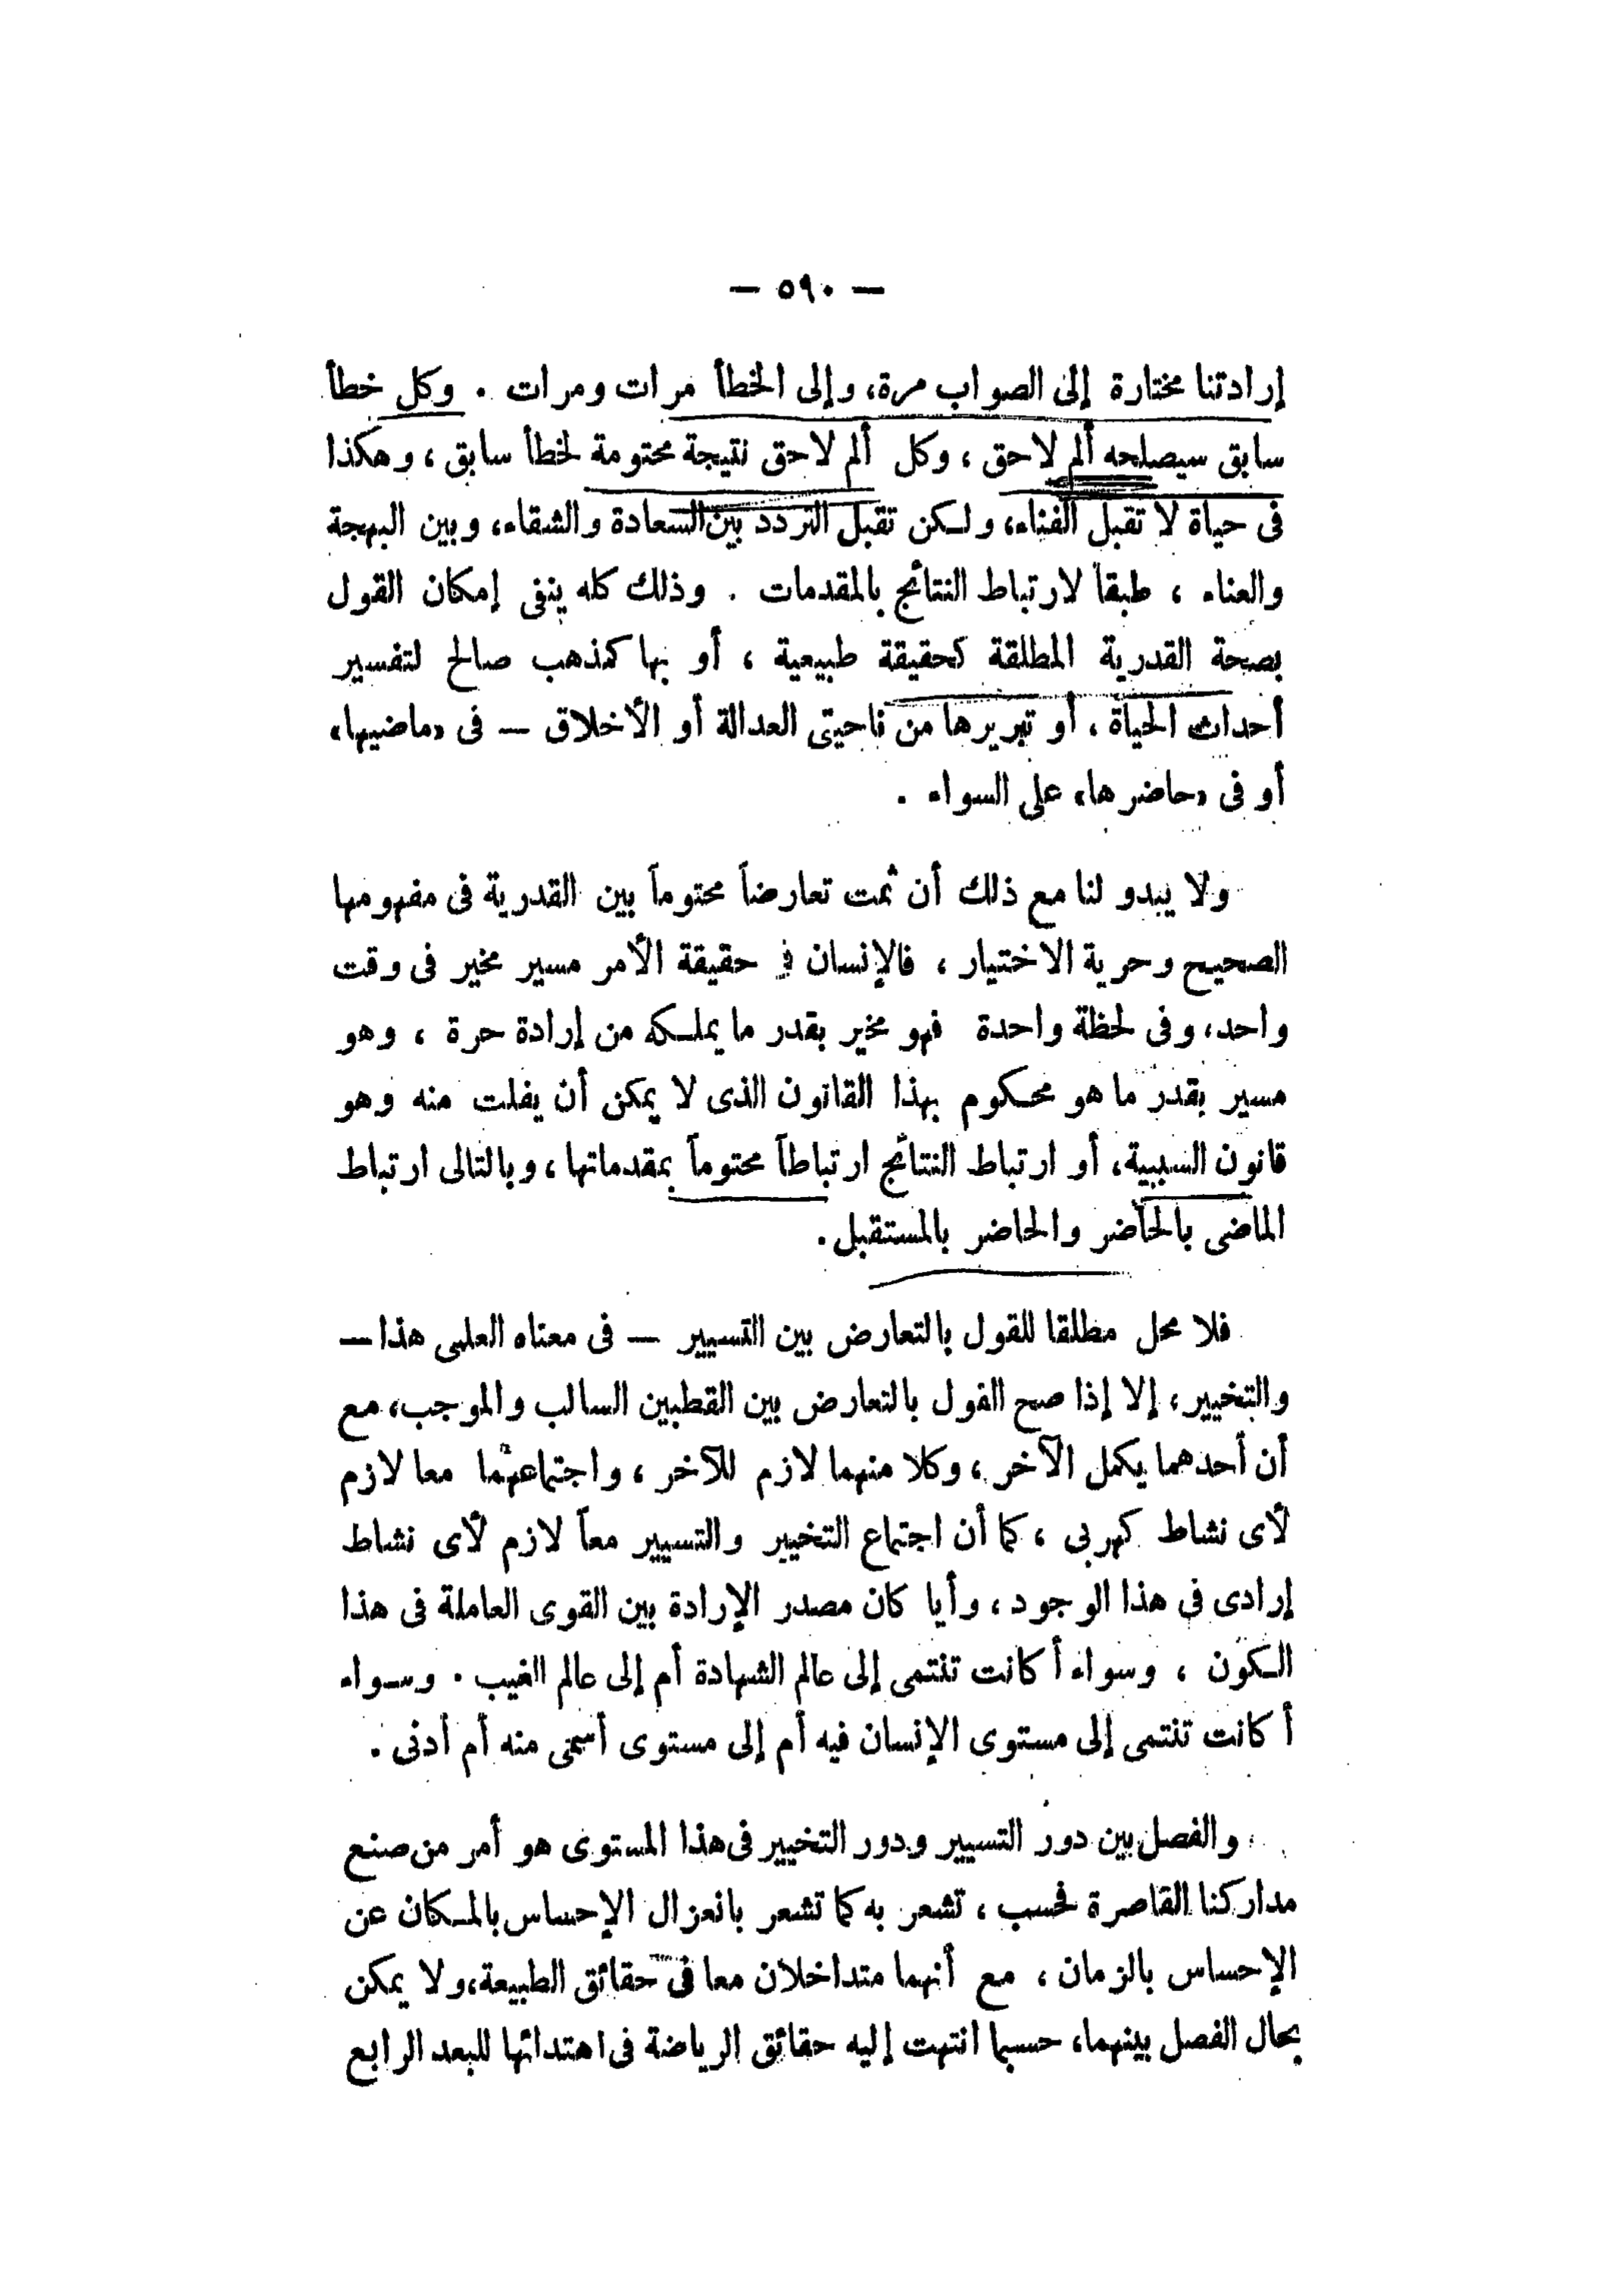 — ٥٩٠ —
إرادتنا مختارة إلى الصواب مرة، وإلى الخطأ مرات ومرات . وكل خطأ
سابق سيصلحه ألم لاحق ، وكل ألم لاحق نتيجة محتومة لخطأ سابق ، وهكذا
فى حياة لا تقبل الفناء، ولكن تقبل التردد بين السعادة والشقاء، وبين البهجة
والعناء ، طبقاً لارتباط النتائج بالمقدمات . وذلك كله ينفى إمكان القول
بصحة القدرية المطلقة كحقيقة طبيعية ، أو بها كمذهب صالح لتفسير
أحداث الحياة ، أو تبريرها من ناحيتى العدالة أو الأخلاق – فى «ماضيها»
أو فى «حاضرها» على السواء .
ولا يبدو لنا مع ذلك أن ثمت تعارضاً محتوماً بين القدرية فى مفهومها
الصحيح وحرية الاختيار ، فالإنسان فى حقيقة الأمر مسير مخير فى وقت
واحد، وفى لحظة واحدة فهو مخير بقدر ما يملكه من إرادة حرة ، وهو
مسير بقدر ما هو محكوم بهذا القانون الذى لا يمكن أن يفلت منه وهو
قانون السببية، أو ارتباط النتائج ارتباطاً محتوماً بمقدماتها، وبالتالى ارتباط
الماضى بالحاضر والحاضر بالمستقبل.
فلا محل مطلقا للقول بالتعارض بين التسيير – فى معناه العلمى هذا –
والتخيير، إلا إذا صح القول بالتعارض بين القطبين السالب والموجب، مع
أن أحدهما يكمل الآخر ، وكلا منهما لازم للآخر ، واجتماعهما معا لازم
لأى نشاط كهربى ، كما أن اجتماع التخيير والتسيير معاً لازم لأى نشاط
إرادى فى هذا الوجود ، وأيا كان مصدر الإرادة بين القوى العاملة فى هذا
الكون ، وسواء أكانت تنتمى إلى عالم الشهادة أم إلى عالم الغيب . وسواء
أكانت تنتمى إلى مستوى الإنسان فيه أم إلى مستوى أسمى منه أم أدنى .
والفصل بين دور التسيير ودور التخيير فى هذا المستوى هو أمر من صنع
مداركنا القاصرة فحسب ، تشعر به كما تشعر بانعزال الإحساس بالمكان عن
الإحساس بالزمان ، مع أنهما متداخلان معا فى حقائق الطبيعة، ولا يمكن
بحال الفصل بينهما، حسبما انتهت إليه حقائق الرياضة فى اهتدائها للبعد الرابع